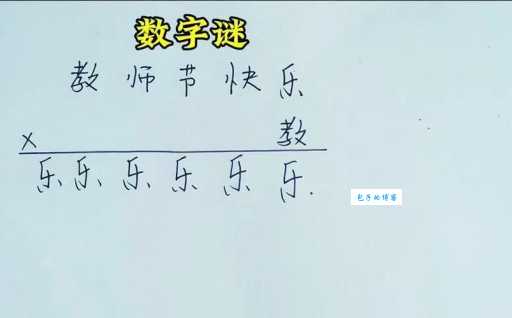 数字谜
教师节快乐
× 教
乐乐乐乐乐乐.
包子的博客